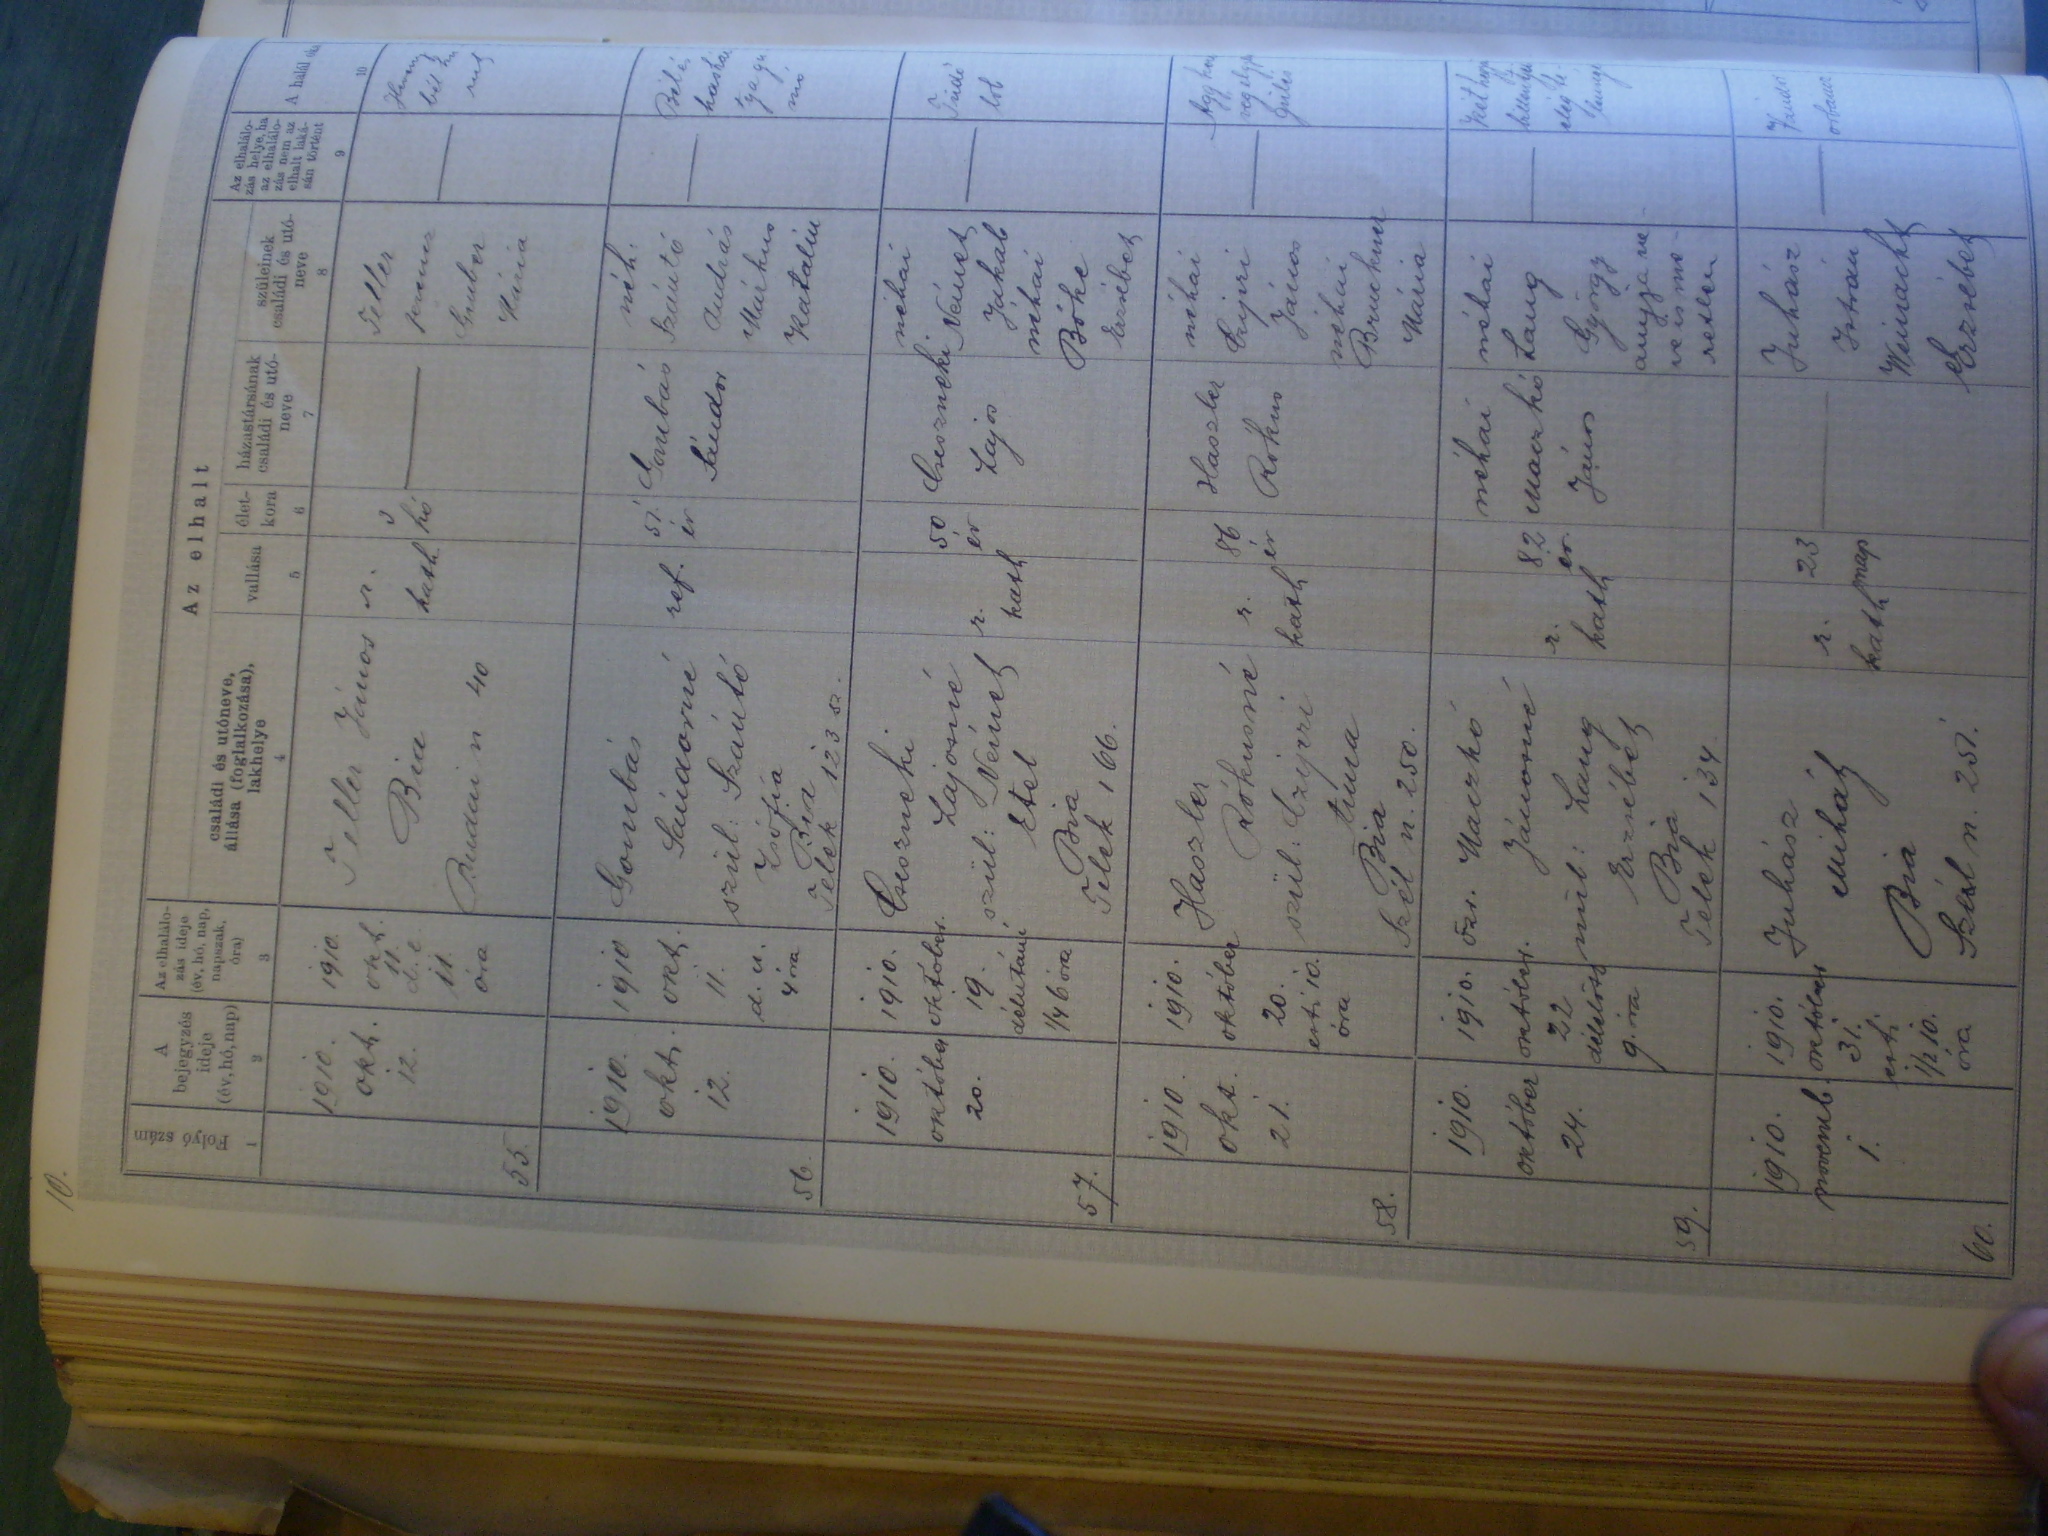 10.
Az elhalt
Folyó szám
A bejegyzés ideje (év, hó, nap)
Az elhalálozás ideje (év, hó, nap, napszak, óra)
családi és utóneve, állása (foglalkozása), lakhelye
vallása
életkora
házastársának családi és utóneve
szüleinek családi és utóneve
Az elhalálozás helye, ha az elhalálozás nem az elhalt lakásán történt
A halál
1 2 3 4 5 6 7 8 9 10
55.
1910.
okt.
12.
1910.
okt.
11.
d. e.
11.
óra
Teller János
Bia
Budai n 40
r.
kath.
3
hó
Teller
Ferencz
Gruber
Mária
56.
1910.
okt.
12.
1910
okt.
11.
d. u.
4 óra
Gombás
Sándorné
szül: Szántó
Zsófia
Bia
Telek 123 sz.
ref.
51.
év
Gombás
Sándor
néh.
Szántó
András
Márkus
Katalin
57.
1910.
október
20.
1910.
október.
19.
délutáni
1/4 6 óra
Cseszneki
Lajosné
szül: Német
Etel
Bia
Telek 166.
r.
kath
50
év
Cseszneki
Lajos
néhai
Német
Jakab
néhai
Bőke
Erzsébet
Tüdő
lob
58.
1910
okt.
21.
1910.
október
20.
esti 10.
óra
Haszler
Rókusné
szül: Czijzri
Anna
Bia
Szél n. 250.
r.
kath
86
év
Haszler
Rókus
néhai
János
néhai
Bruckner
Mária
59.
1910.
október
24.
1910.
október.
22
délelőtt
9. óra
özv. Maczkó
Jánosné
szül: Lang
Erzsébet
Bia
Telek 134.
r.
kath
82
év
néhai
Maczkó
János
néhai
Lang
György
anyja ne
ve isme-
retlen
60.
1910.
novemb.
1.
1910.
október
31.
esti
1/2 10.
óra
Juhász
Mihály
Bia
Szél n. 251.
r.
kath
23
nap
Juhász
István
Weinacht
Erzsébet